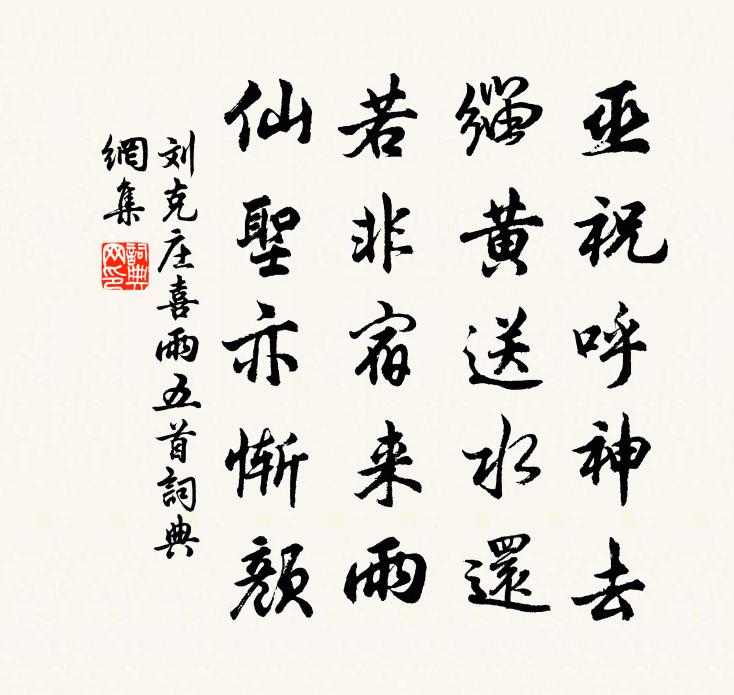 巫祝呼神去
緇黃送水還
若非宵来雨
仙聖亦慚顏
刘克庄喜雨五首詞典
網集
詞典
网印